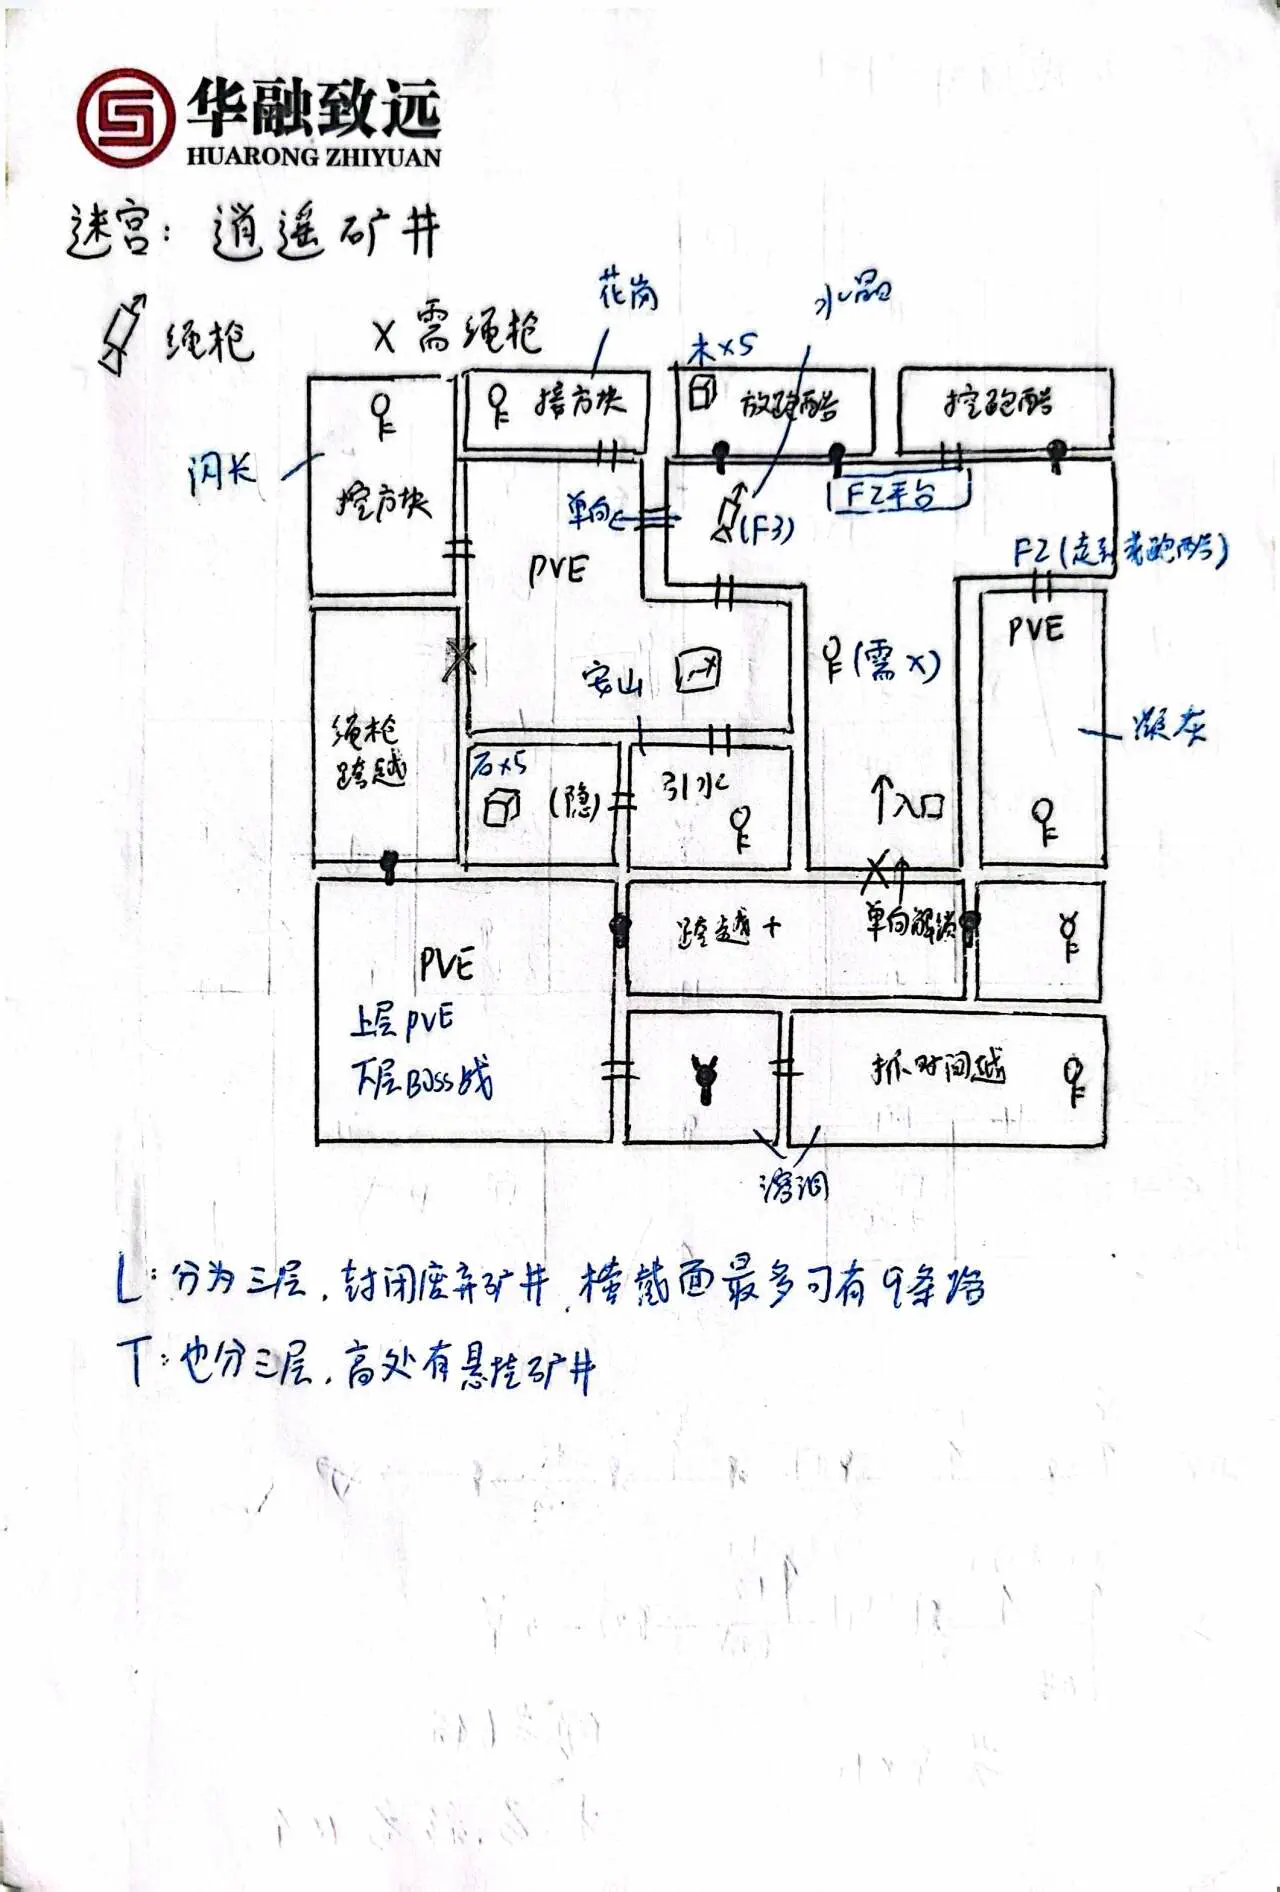 华融致远
HUARONG ZHIYUAN
迷宫：逍遥矿井
绳枪
X需绳枪
花岗
水晶
木×5
接方块
放跑酷
挖跑酷
闪长
挖方块
单向
(F3)
F2平台
PVE
F2(走到 跑酷)
PVE
(需X)
安山
凝灰
绳枪
跨越
石×5
(隐)
引水
入口
跨越+
单向解锁
PVE
上层PVE
下层Boss战
抓时间越
溶洞
L：分为三层，封闭废弃矿井，横截面最多可有9条路
T：也分三层，高处有悬挂矿井